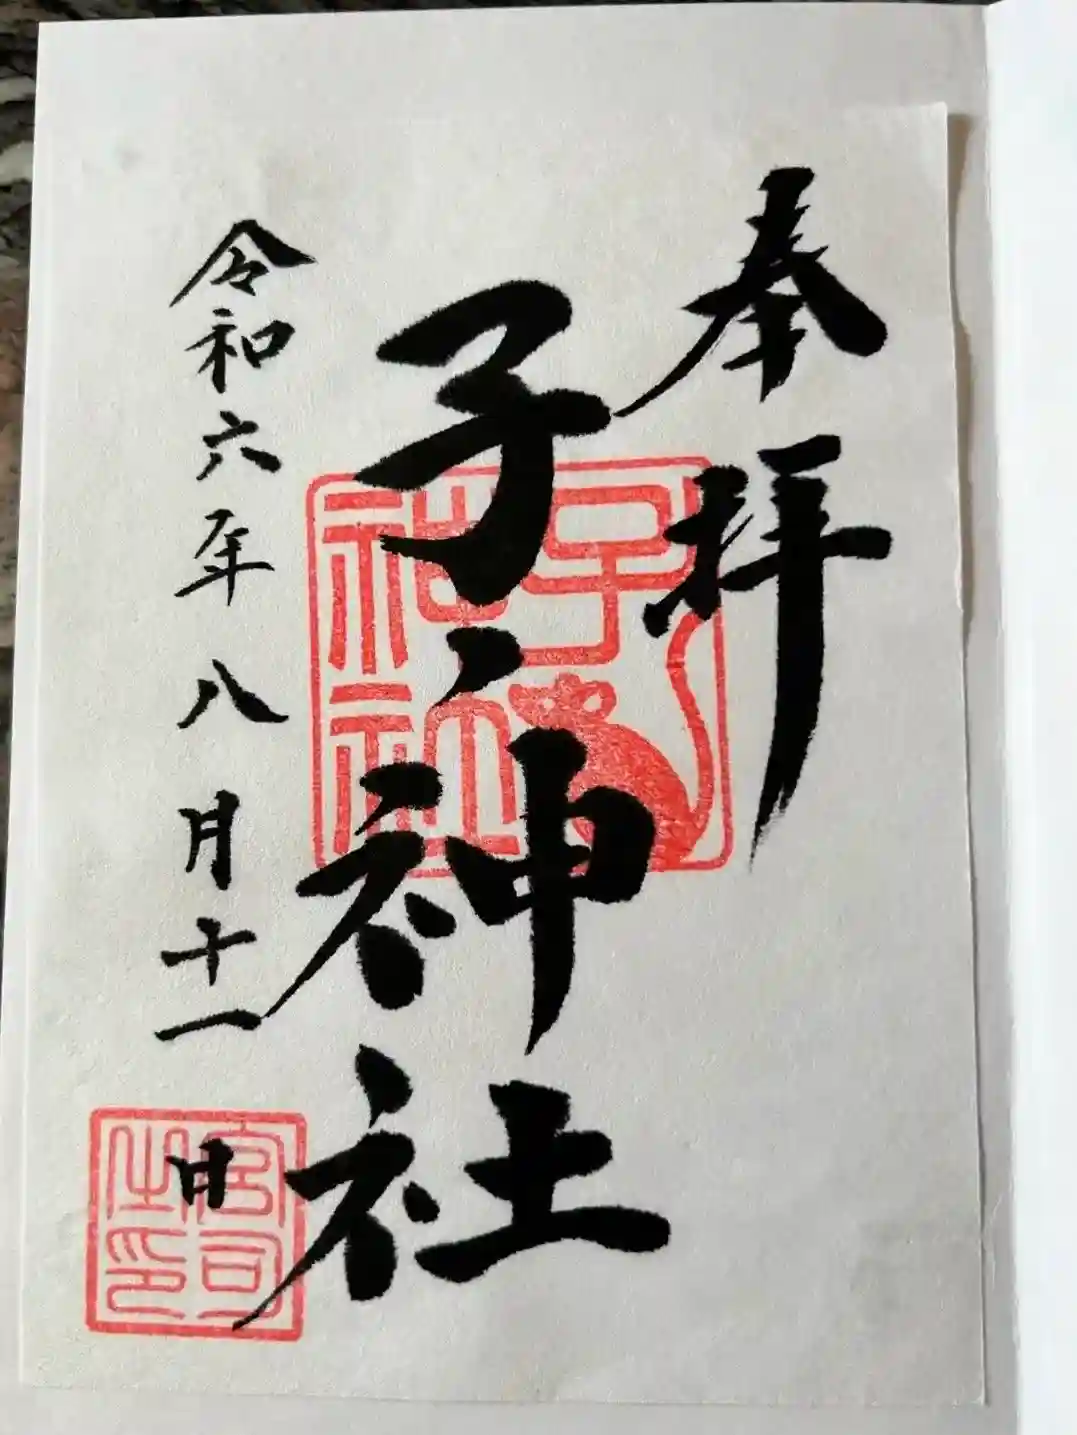 奉拝
子之神社
子神社
令和六年八月十一日
宮司之印